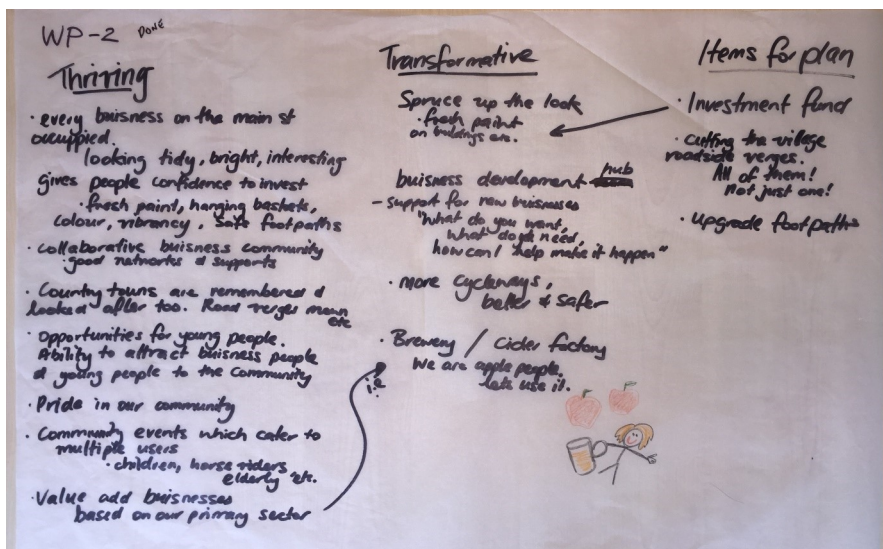 WP-2 DONE
Thriving
· every buisness on the main st
occuppied.
looking tidy, bright, interesting
gives people confidence to invest
· fresh paint, hanging baskets,
colour, vibrancy, safe footpaths
· collaborative buisness community
· good networks & supports
· Country towns are remembered &
looked after too. Road verges mown
etc
· opportunities for young people.
Ability to attract buisness people
& young people to the community
· Pride in our community
· Community events which cater to
multiple users
· children, horse riders,
elderly etc.
· Value add buisnesses
based on our primary sector
i.e
Transformative
Spruce up the look
· fresh paint
on buildings etc.
buisness development hub
- support for new buisnesses
"what do you want,
what do you need,
how can I help make it happen"
· more cycleways,
better & safer
· Brewery / Cider factory
We are apple people.
lets use it.
Items for plan
· Investment fund
· cutting the village
roadside verges.
All of them!
Not just one!
· upgrade footpaths